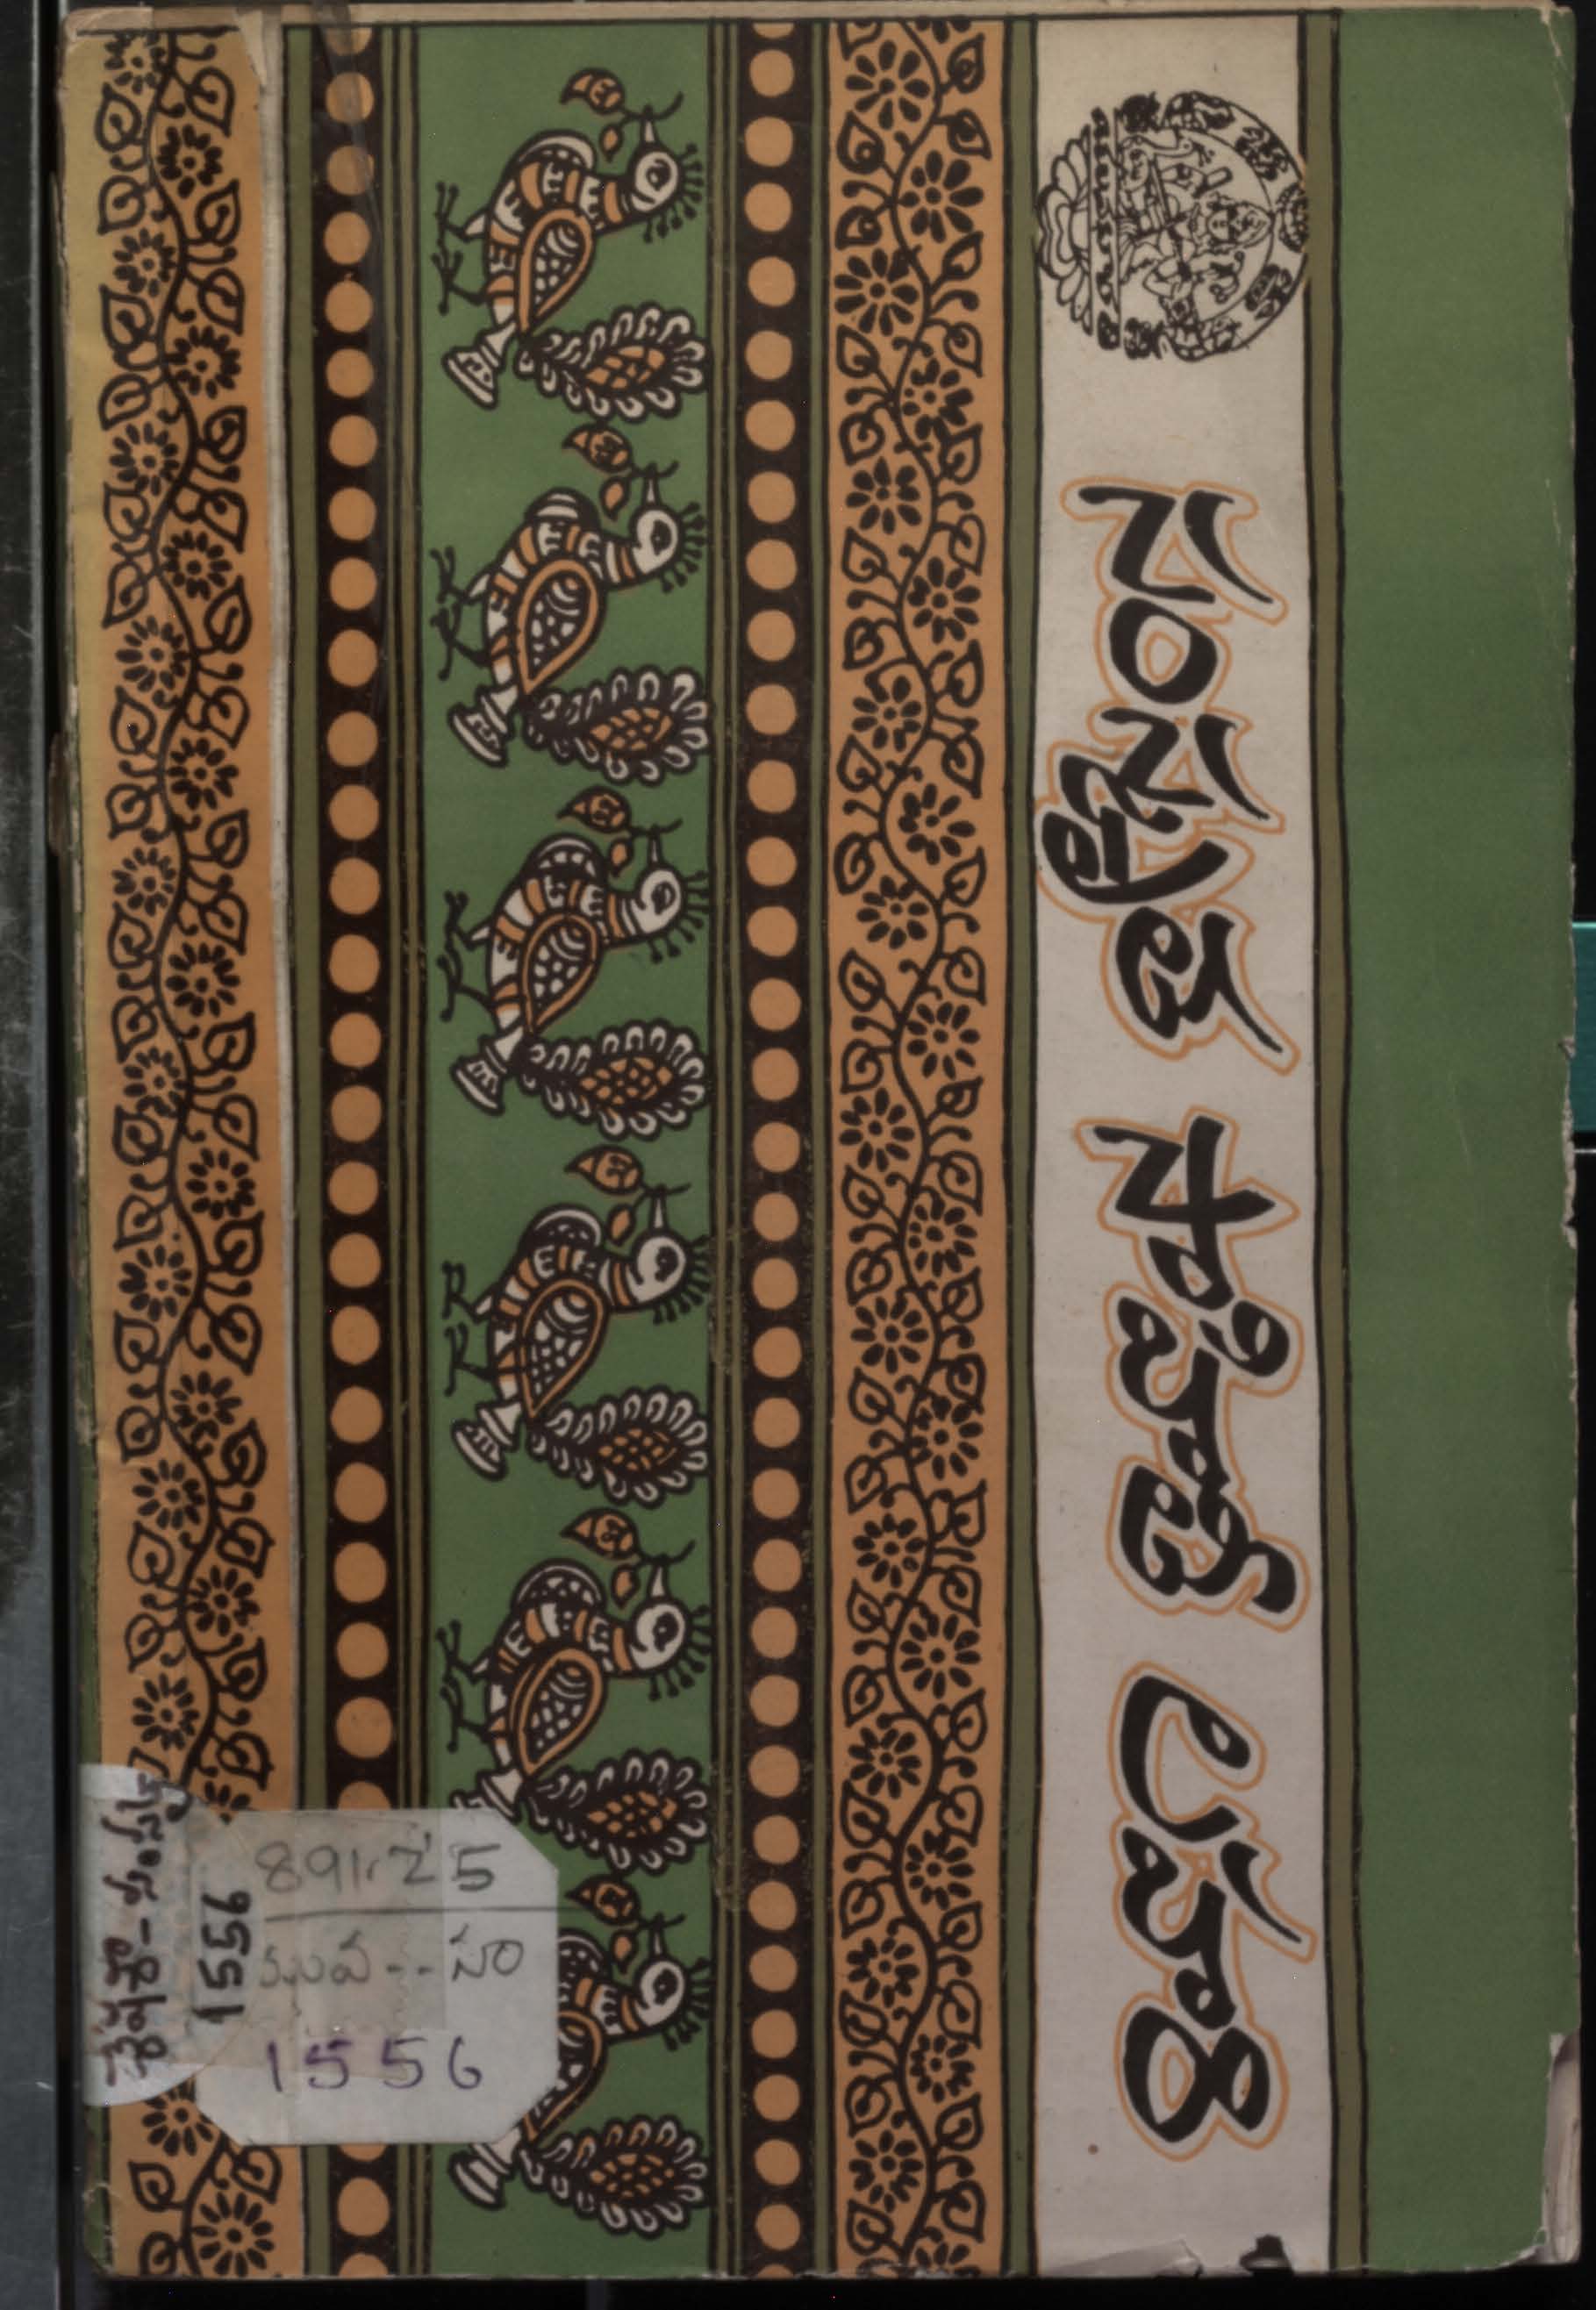 సంస్కృత సాహిత్య లహరి
1556
891.25
1556